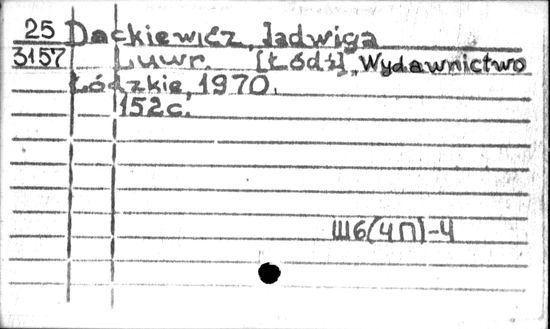 25 Dackiewicz, Jadwiga
3157 Luwr. [Łódź], Wydawnictwo
Łódzkie, 1970.
152с.
Ш6(4П)-4